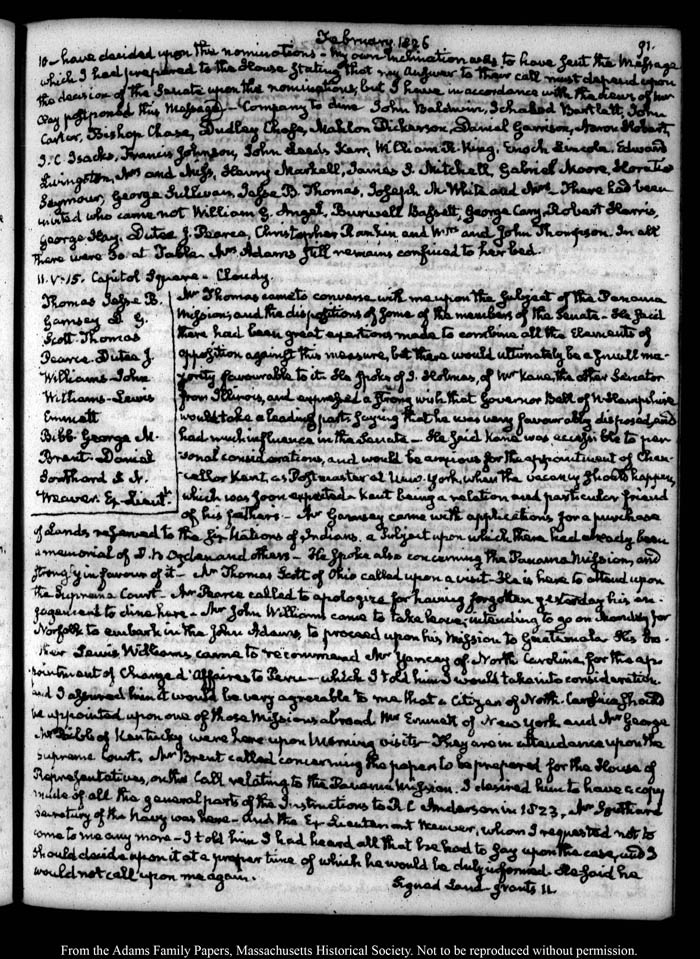 February 1826
91.
10 – have decided upon the nominations – My own inclination was to have sent the Message
which I had prepared to the House stating that my answer to their call must depend upon
the decision of the Senate upon the nominations; but I have in accordance with the views of Mr
Clay postponed this Message) – Company to dine John Baldwin, Ichabod Bartlett, John
Carter, Bishop Chase, Dudley Chase, Mahlon Dickerson, Daniel Garrison, Aaron Hobart,
J. C. Isacks, Francis Johnson, John Leeds Kerr, William R. King, Enoch Lincoln, Edward
Livingston, Mrs and Miss, Henry Markell, James S. Mitchell, Gabriel Moore, Horatio
Seymour, George Sullivan, Jesse B. Thomas, Joseph M. White and Mrs. There had been
invited who came not William G. Angel, Burwell Bassett, George Cary, Robert Harris,
George Hay, Dutee J. Pearce, Christopher Rankin and Mrs and John Thompson. In all
there were 30 at Table. Mrs Adams still remains confined to her bed.
11. V–15. Capitol Square – Cloudy.
Thomas Jesse B.
Garnsey D. G.
Scott Thomas
Pearce Dutee J.
Williams–John
Williams–Lewis
Emmett
Bibb George M.
Brent Daniel
Southard S. L.
Weaver. Ex Lieutt.
Mr Thomas came to converse with me upon the subject of the Panama
Mission, and the dispositions of some of the members of the Senate. He said
there had been great exertions made to combine all the Elements of
opposition against this measure, but there would ultimately be a small ma-
jority favourable to it. He spoke of J. Holmes, of Mr Kane, the other Senator
from Illinois, and expressed a strong wish that Governor Bell of N. Hampshire
would take a leading part, saying that he was very favourably disposed and
had much influence in the Senate – He said Kane was accessible to per-
sonal considerations, and would be anxious for the appointment of Chan-
cellor Kent, as Postmaster at New York, when the vacancy should happen,
which was soon expected – Kent being a relation and particular friend
of his father's – Mr Garnsey came with applications for a purchase
of Lands reserved to the Six Nations of Indians. a subject upon which there had already been
a memorial of D. A. Ogden and others – He spoke also concerning the Panama Mission, and
strongly in favour of it – Mr Thomas Scott of Ohio called upon a visit – He is here to attend upon
the Supreme Court – Mr Pearce called to apologize for having forgotten yesterday his en-
gagement to dine here – Mr John Williams came to take leave, intending to go on Monday for
Norfolk to embark in the John Adams, to proceed upon his Mission to Guatemala. His bro-
ther Lewis Williams came to recommend Mr Yancey of North Carolina, for the ap-
pointment of Chargé d'Affaires to Peru – which I told him I would take into consideration
and I assured him it would be very agreeable to me that a citizen of North Carolina should
be appointed upon one of those Missions abroad. Mr Emmett of New York and Mr George
M. Bibb of Kentucky were here upon Morning visits – They are in attendance upon the
Supreme Court. Mr Brent called concerning the paper to be prepared for the House of
Representatives, on the Call relating to the Panama Mission. I desired him to have a copy
made of all the general parts of the Instructions to R. C. Anderson in 1823, Mr Southard
Secretary of the Navy was here – and the Ex Lieutenant Weaver, whom I requested not to
come to me any more – I told him I had heard all that he had to say upon the case, and I
should decide upon it at a proper time of which he would be duly informed. He said he
would not call upon me again.
Signed Land–grants 11.
From the Adams Family Papers, Massachusetts Historical Society. Not to be reproduced without permission.